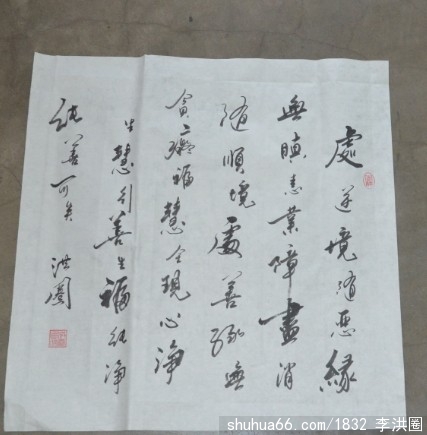 處逆境随恶緣
無瞋恚業障盡消
随順境處善缘無
貪癡福慧全現心淨
生慧行善生福純淨
純善可矣 洪圈
shuhua66.com/1832 李洪圈